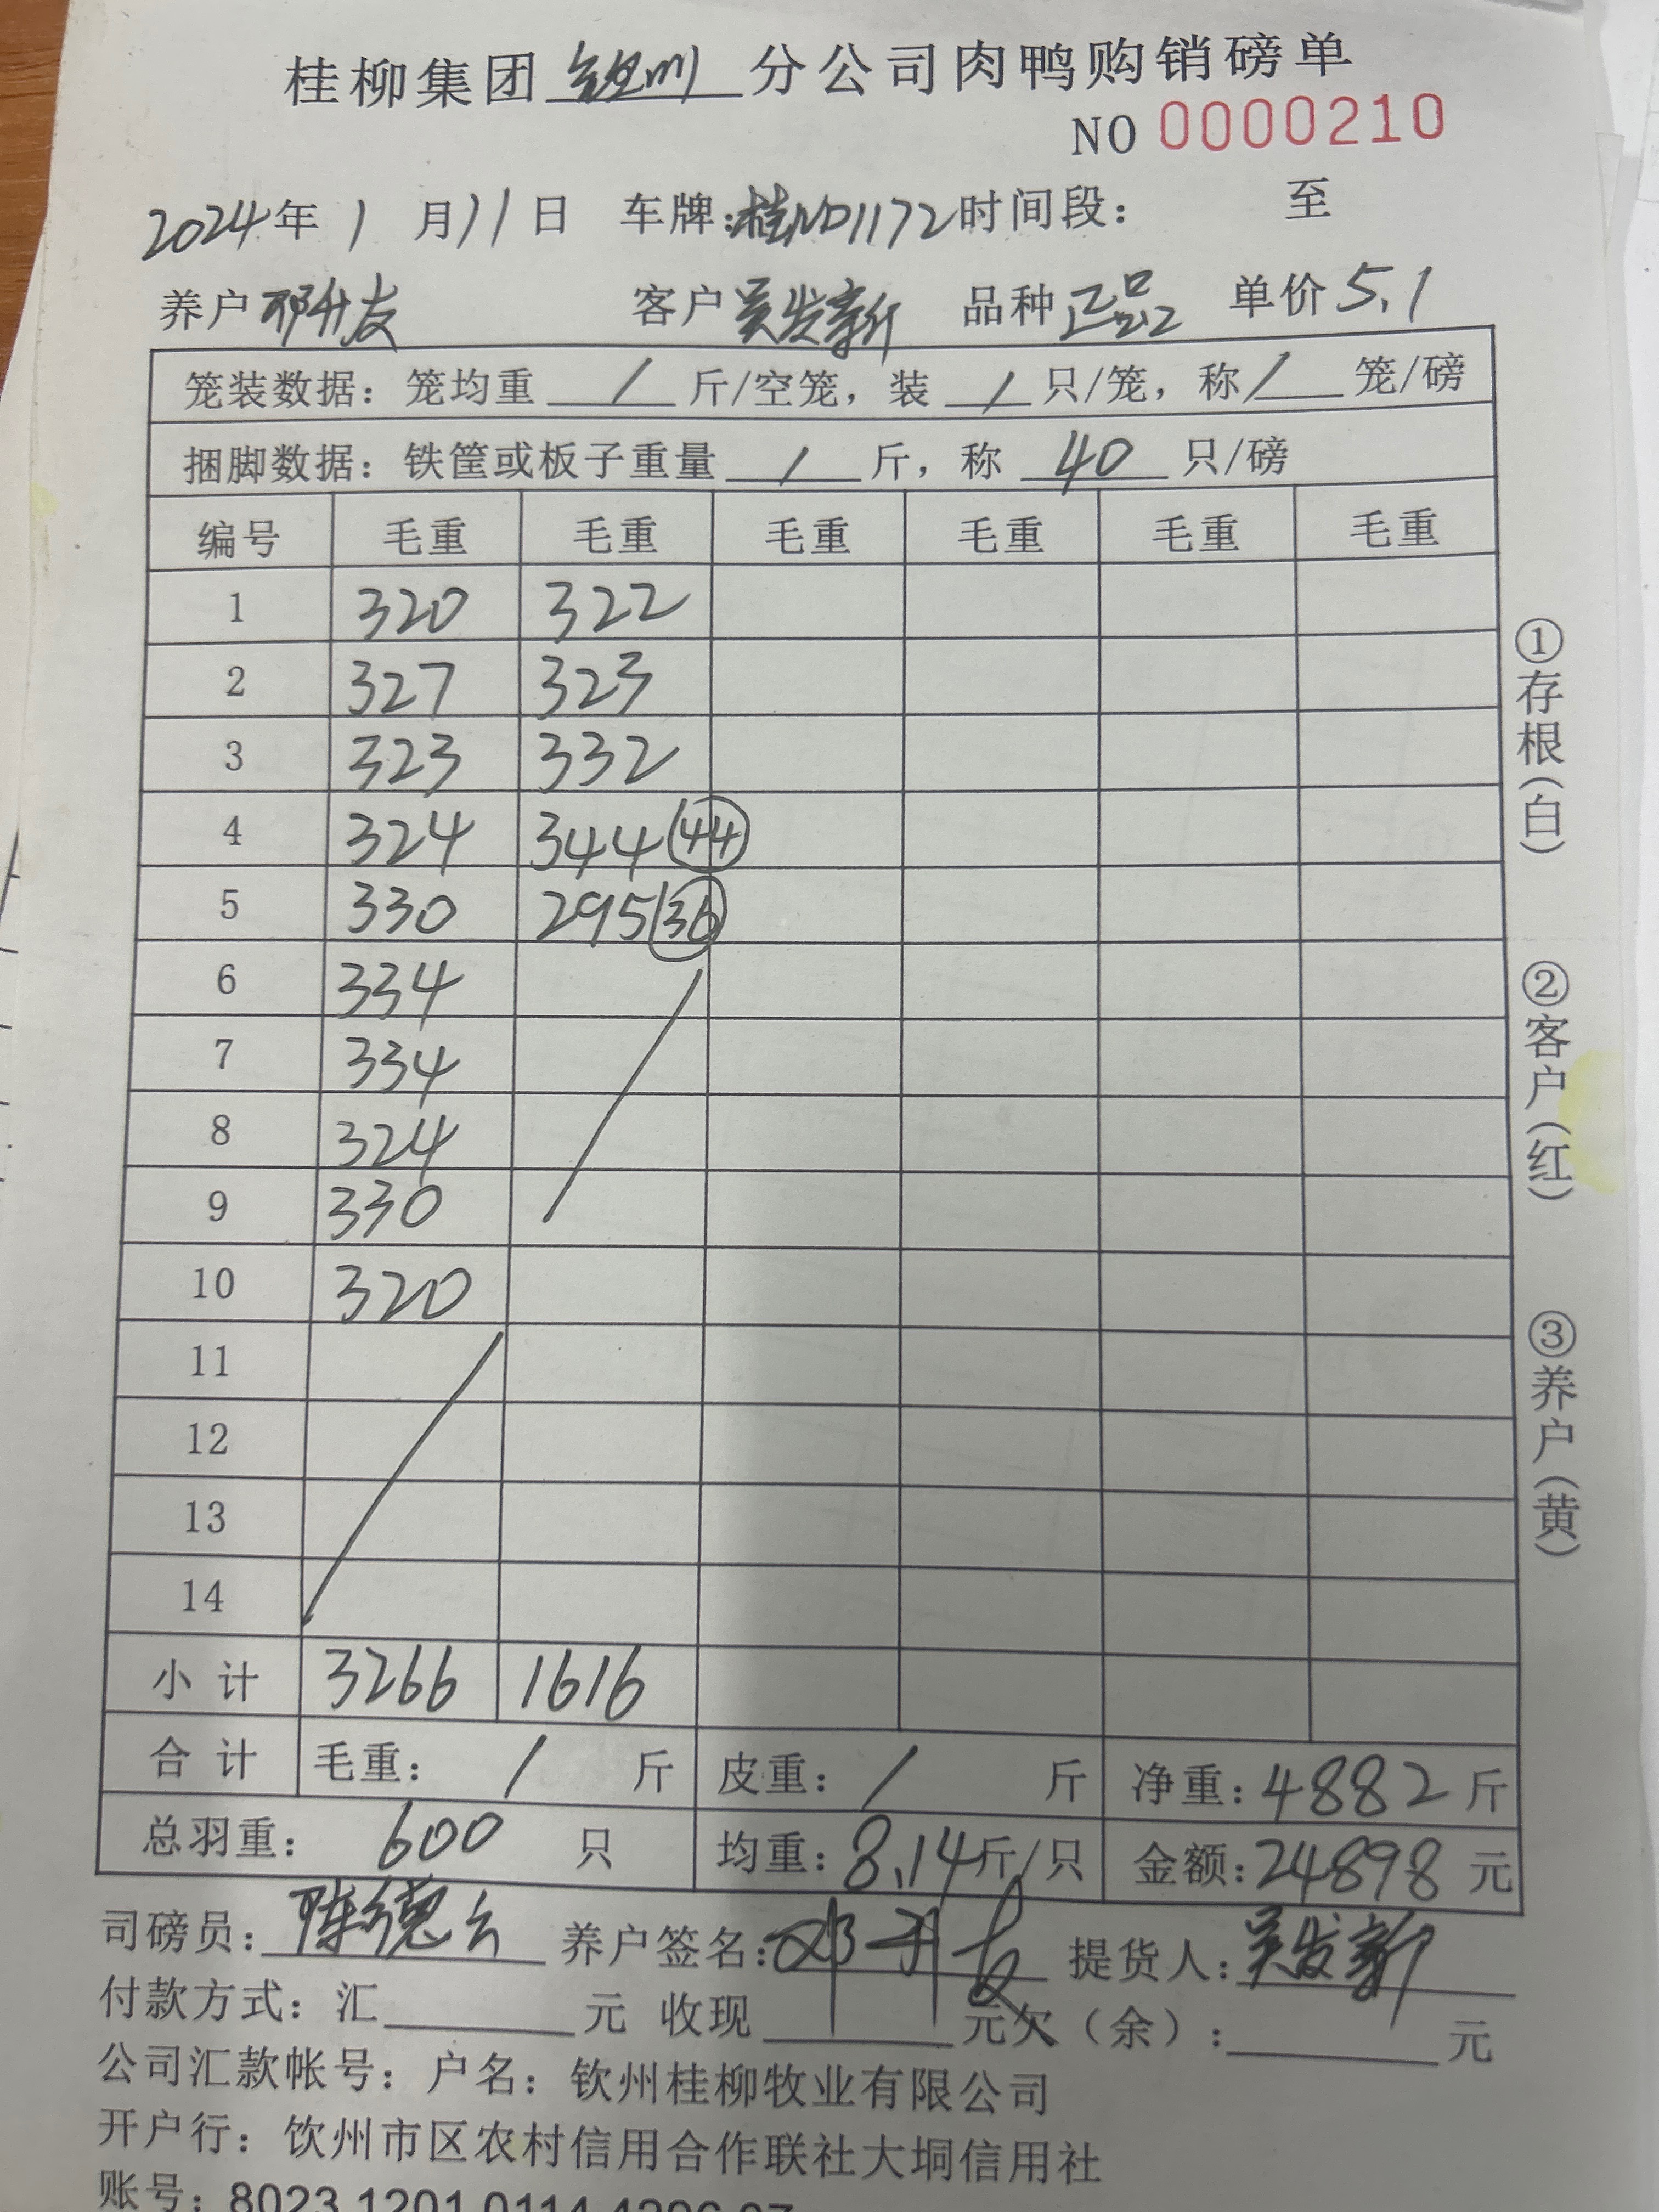 桂柳集团钦州分公司肉鸭购销磅单
NO 0000210
2024年1月11日 车牌:桂ND1172时间段: 至
养户邓升友 客户吴发新 品种正品 单价5.1
笼装数据: 笼均重 / 斤/空笼, 装 / 只/笼, 称 / 笼/磅
捆脚数据: 铁筐或板子重量 / 斤, 称 40 只/磅
编号 毛重 毛重 毛重 毛重 毛重 毛重
1 320 322
2 327 323
3 323 332
4 324 344 (44)
5 330 295 (36)
6 334
7 334
8 324
9 330
10 320
11
12
13
14
小计 3266 1616
合计 毛重: / 斤 皮重: / 斤 净重: 4882 斤
总羽重: 600 只 均重: 8.14斤/只 金额: 24898 元
司磅员: 陈德云 养户签名: 邓升友 提货人: 吴发新
付款方式: 汇 元 收现 元欠(余): 元
公司汇款帐号: 户名: 钦州桂柳牧业有限公司
开户行: 钦州市区农村信用合作联社大垌信用社
账号: 8023 1201 0114 4296 97
①存根(白)
②客户(红)
③养户(黄)